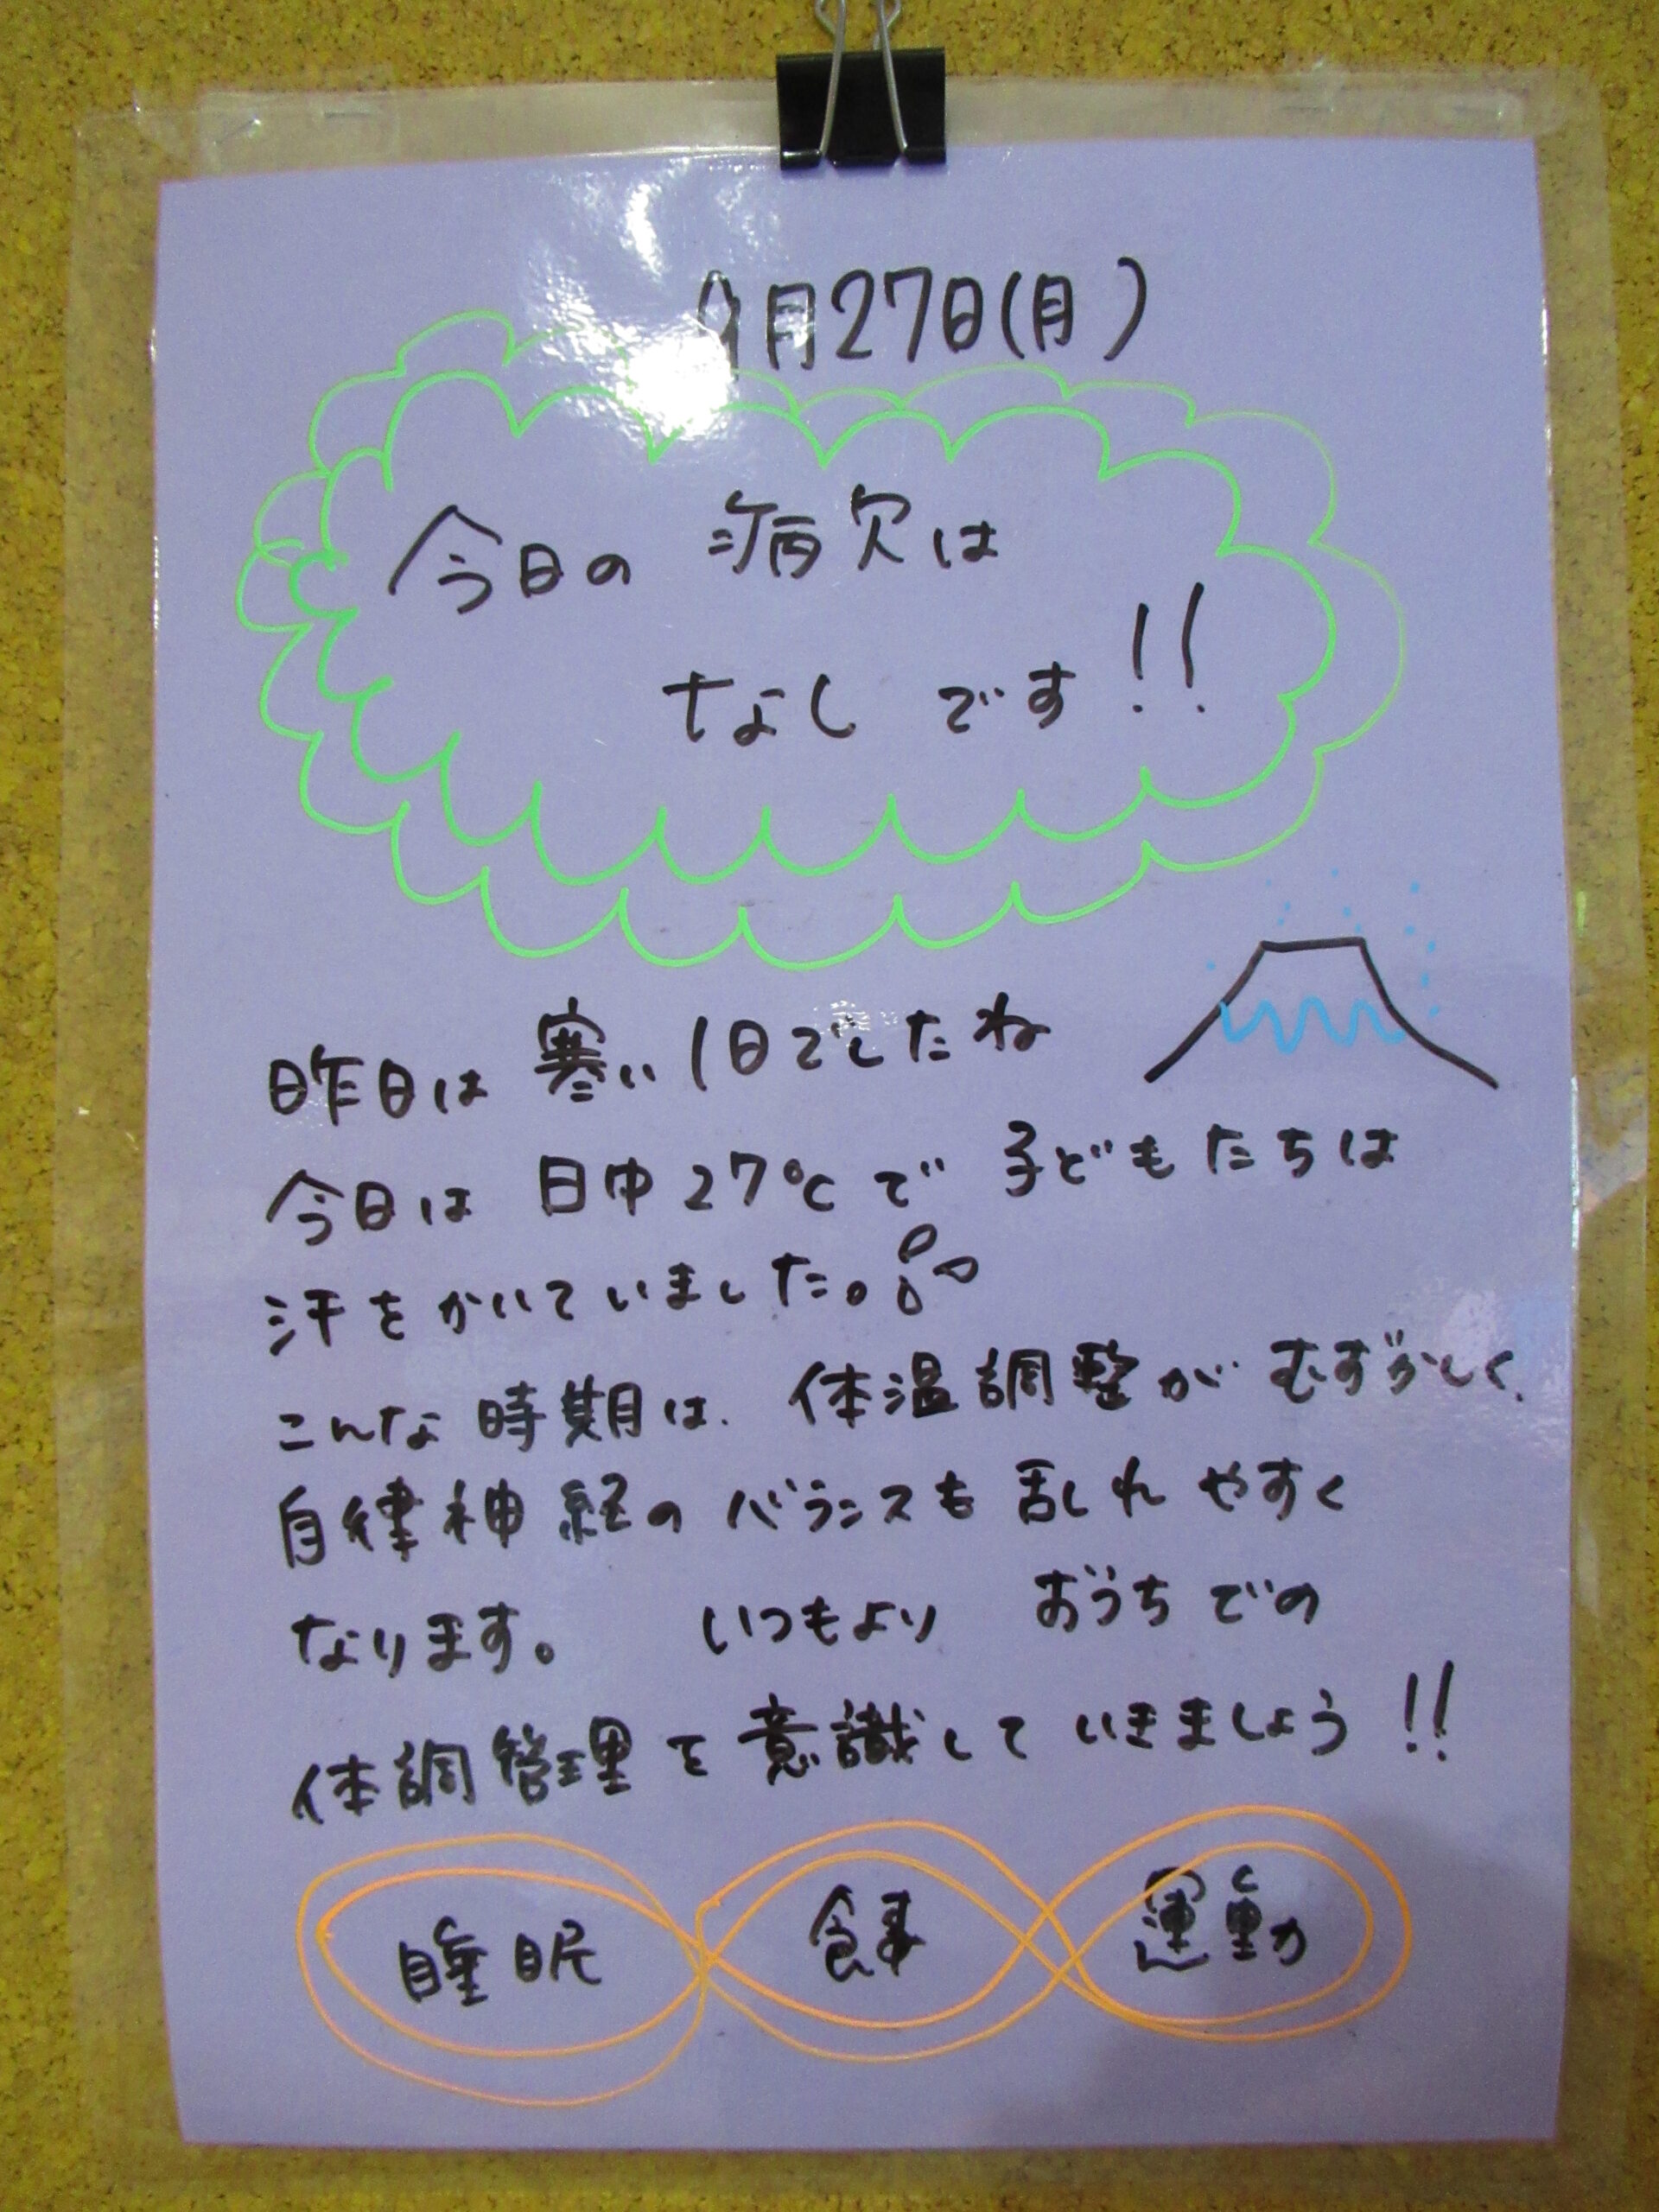 9月27日(月)
今日の 病欠は
なし です!!
昨日は 寒い1日でしたね
今日は 日中27℃で 子どもたちは
汗をかいていました。
こんな時期は、体温調整が むずかしく、
自律神経の バランスも 乱れ やすく
なります。 いつもより おうちでの
体調管理を意識して いきましょう!!
睡眠 食事 運動